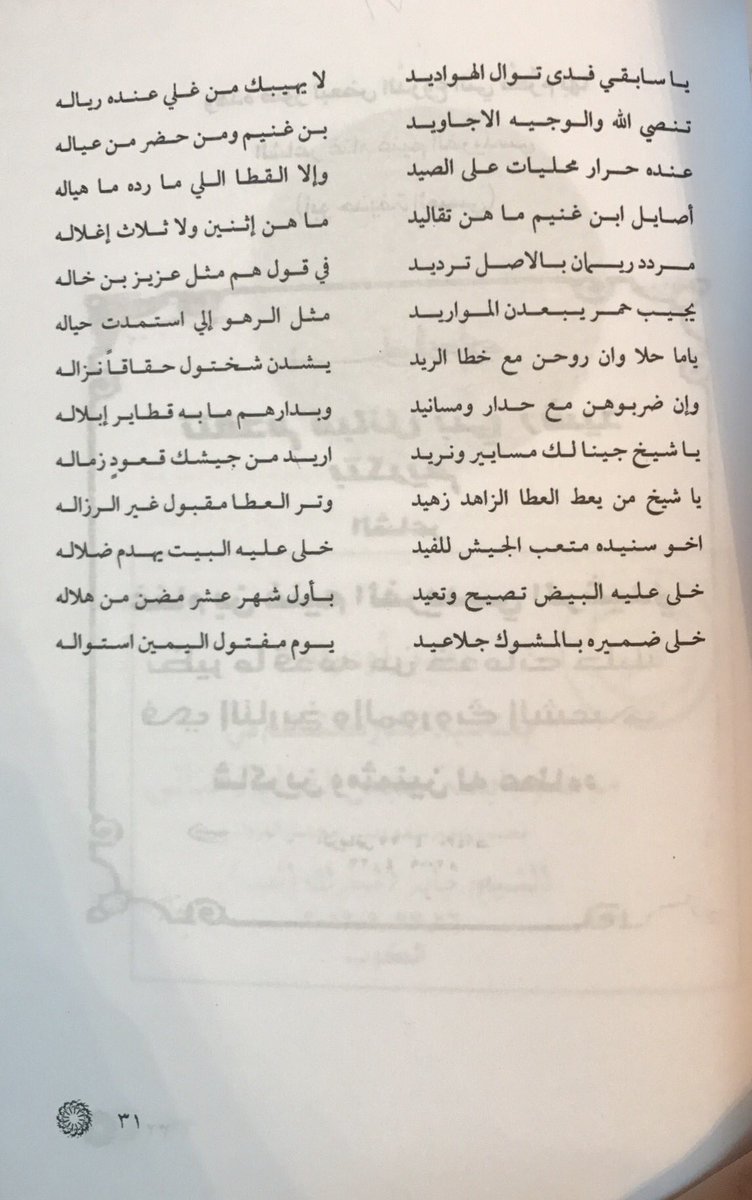 يا سابقي فدى توال الهواديد لا يهيبك من غلي عنده رياله
تنصي الله والوجيه الاجاويد بن غنيم ومن حضر من عياله
عنده حرار محليات على الصيد وإلا القطا اللي ما رده ما هياله
أصايل ابن غنيم ما هن تقاليد ما هن إثنين ولا ثلاث إغلاله
مردد ريمان بالاصل ترديد في قول هم مثل عزيز بن خاله
يجيب حمر يبعدن المواريد مثل الرهو إلي استمدت حياله
ياما حلا وان روحن مع خطا الريد يشدن شختول حقاقاً نزاله
وإن ضربوهن مع حدار ومسانيد وبدارهم ما به قطاير إبلاله
يا شيخ جينا لك مسايير ونريد اريد من جيشك قعودٍ زماله
يا شيخ من يعط العطا الزاهد زهيد وتر العطا مقبول غير الرزاله
اخو سنيده متعب الجيش للفيد خلى عليه البيت يهدم ضلاله
خلى عليه البيض تصيح وتعيد بأول شهر عشر مضن من هلاله
خلى ضميره بالمشوك جلاعيد يوم مفتول اليمين استواله
٣١